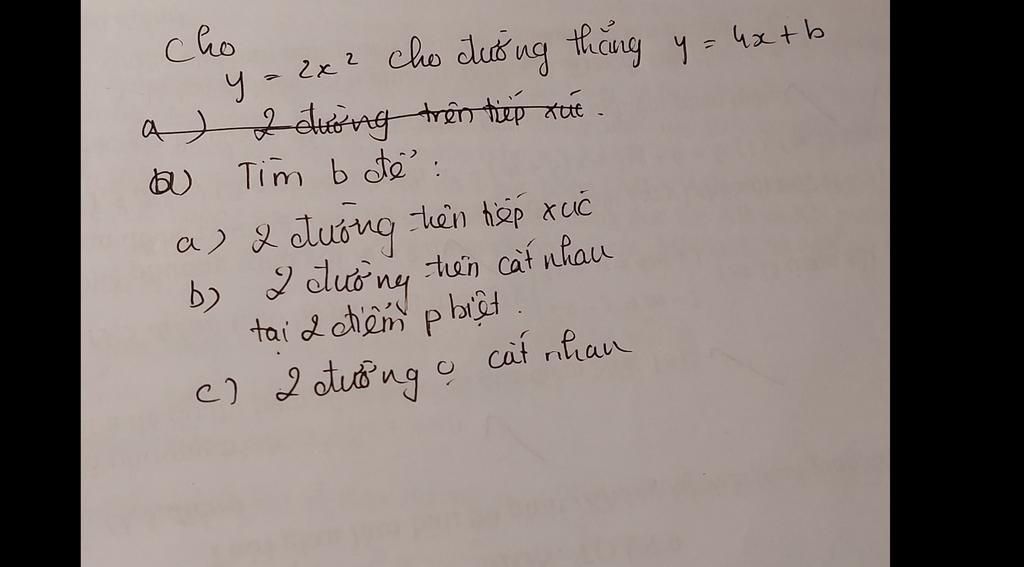 Cho
y = 2x² cho đường thẳng y = 4x + b
a) 2 đường trên tiếp xúc.
Tìm b để:
a) 2 đường trên tiếp xúc
b) 2 đường trên cắt nhau
tại 2 điểm p biệt.
c) 2 đường o cắt nhau